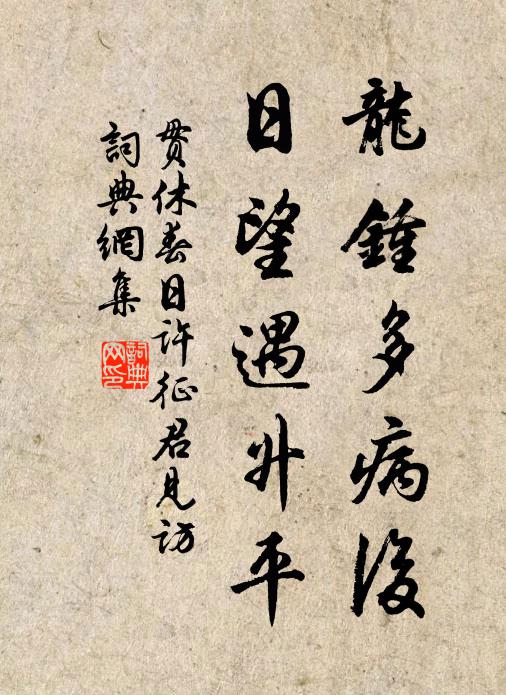 龍鍾多病後
日望遇升平
貫休春日許征君見訪
詞典網集
詞典网印